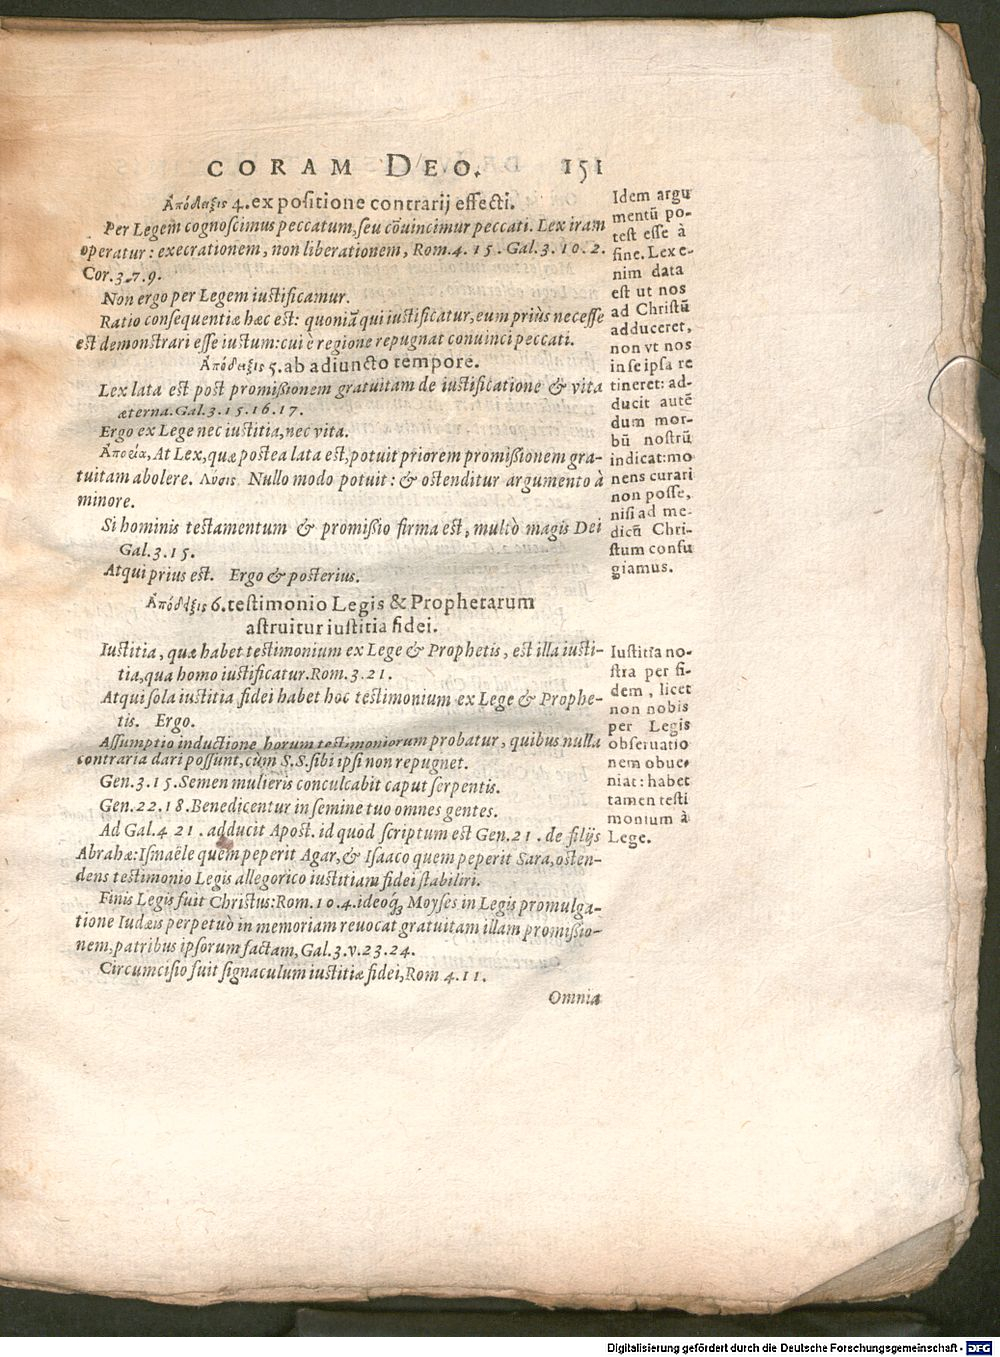 CORAM DEO. 151
Ἀπόδειξις 4. ex positione contrarij effecti.
Per Legem cognoscimus peccatum, seu cōuincimur peccati. Lex iram
operatur: execrationem, non liberationem, Rom. 4. 15. Gal. 3. 10. 2.
Cor. 3. 7. 9.
Non ergo per Legem iustificamur.
Ratio consequentiæ hæc est: quoniā qui iustificatur, eum priùs necesse
est demonstrari esse iustum: cui è regione repugnat conuinci peccati.
Ἀπόδειξις 5. ab adiuncto tempore.
Lex lata est post promißionem gratuitam de iustificatione & vita
æterna. Gal. 3. 15. 16. 17.
Ergo ex Lege nec iustitia, nec vita.
Ἀπορία, At Lex, quæ postea lata est, potuit priorem promißionem gra-
tuitam abolere. Λύσις. Nullo modo potuit: & ostenditur argumento à
minore.
Si hominis testamentum & promißio firma est, multò magis Dei
Gal. 3. 15.
Atqui prius est. Ergo & posterius.
Ἀπόδειξις 6. testimonio Legis & Prophetarum
astruitur iustitia fidei.
Iustitia, quæ habet testimonium ex Lege & Prophetis, est illa iusti-
tia, qua homo iustificatur. Rom. 3. 21.
Atqui sola iustitia fidei habet hoc testimonium ex Lege & Prophe-
tis. Ergo.
Assumptio inductione horum testimoniorum probatur, quibus nulla
contraria dari possunt, cùm S. S. sibi ipsi non repugnet.
Gen. 3. 15. Semen mulieris conculcabit caput serpentis.
Gen. 22. 18. Benedicentur in semine tuo omnes gentes.
Ad Gal. 4 21. adducit Apost. id quod scriptum est Gen. 21. de filijs
Abrahæ: Ismaële quem peperit Agar, & Isaaco quem peperit Sara, osten-
dens testimonio Legis allegorico iustitiam fidei stabiliri.
Finis Legis fuit Christus: Rom. 10. 4. ideoq́; Moyses in Legis promulga-
tione Iudæis perpetuò in memoriam reuocat gratuitam illam promißio-
nem, patribus ipsorum factam, Gal. 3. v. 23. 24.
Circumcisio fuit signaculum iustitiæ fidei, Rom 4. 11.
Omnia
Idem argu
mentū po-
test esse à
fine. Lex e-
nim data
est ut nos
ad Christū
adduceret,
non vt nos
in se ipsa re
tineret: ad-
ducit autē
dum mor-
bū nostrū
indicat: mo
nens curari
non posse,
nisi ad me-
dicū Chri-
stum confu
giamus.
Iustitia no-
stra per fi-
dem, licet
non nobis
per Legis
obseruatio
nem obue-
niat: habet
tamen testi
monium à
Lege.
Digitalisierung gefördert durch die Deutsche Forschungsgemeinschaft - DFG